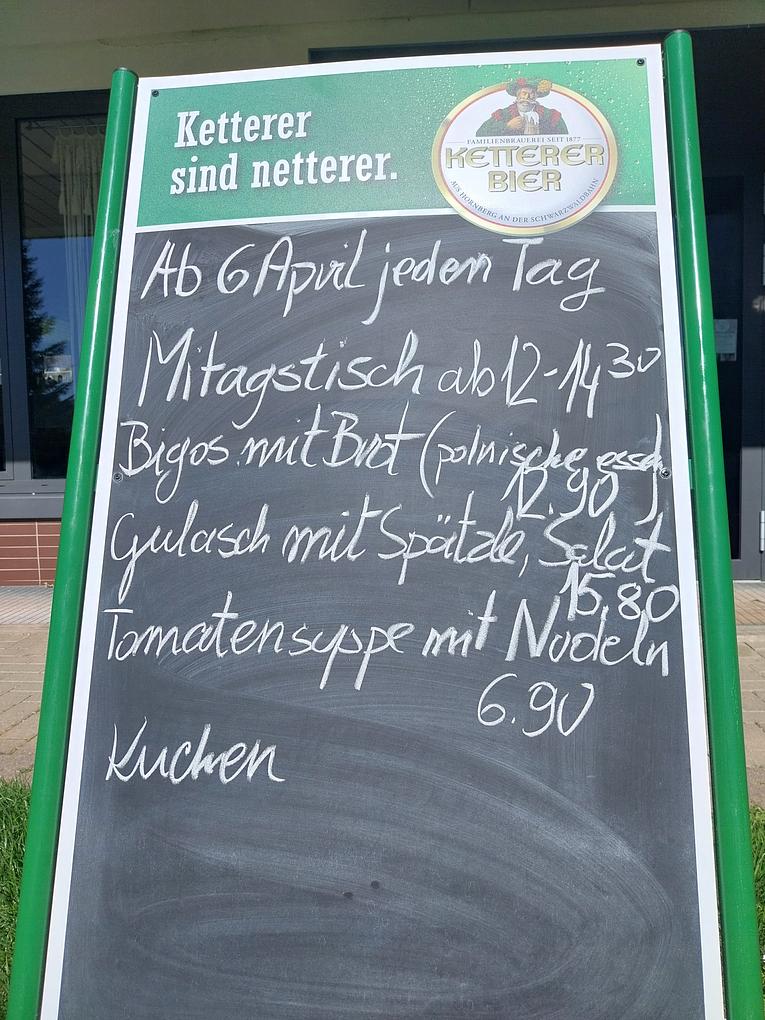 Ketterer
sind netterer.
FAMILIENBRAUEREI SEIT 1877
KETTERER
BIER
AUS HORNBERG AN DER SCHWARZWALDBAHN
Ab 6 April jeden Tag
Mitagstisch ab 12-14 30
Bigos mit Brot (polnische essen
12.90 )
Gulasch mit Spätzle, Salat
15,80
Tomatensuppe mit Nudeln
6.90
Kuchen